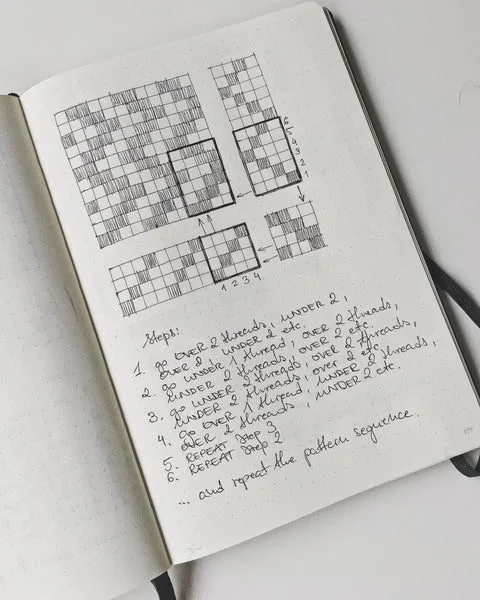 6
5
4
3
2
1
1 2 3 4
Steps:
1. go OVER 2 threads, UNDER 2,
OVER 2, UNDER 2 etc.
2. go UNDER 1 thread, OVER 2 threads,
UNDER 2 threads, OVER 2 etc.
3. go UNDER 2 threads, OVER 2 threads,
UNDER 2 threads, over 2 etc.
4. go OVER 1 thread, UNDER 2 threads,
OVER 2 threads, UNDER 2 etc.
5. REPEAT Step 3
6. REPEAT Step 2
... and repeat the pattern sequence.